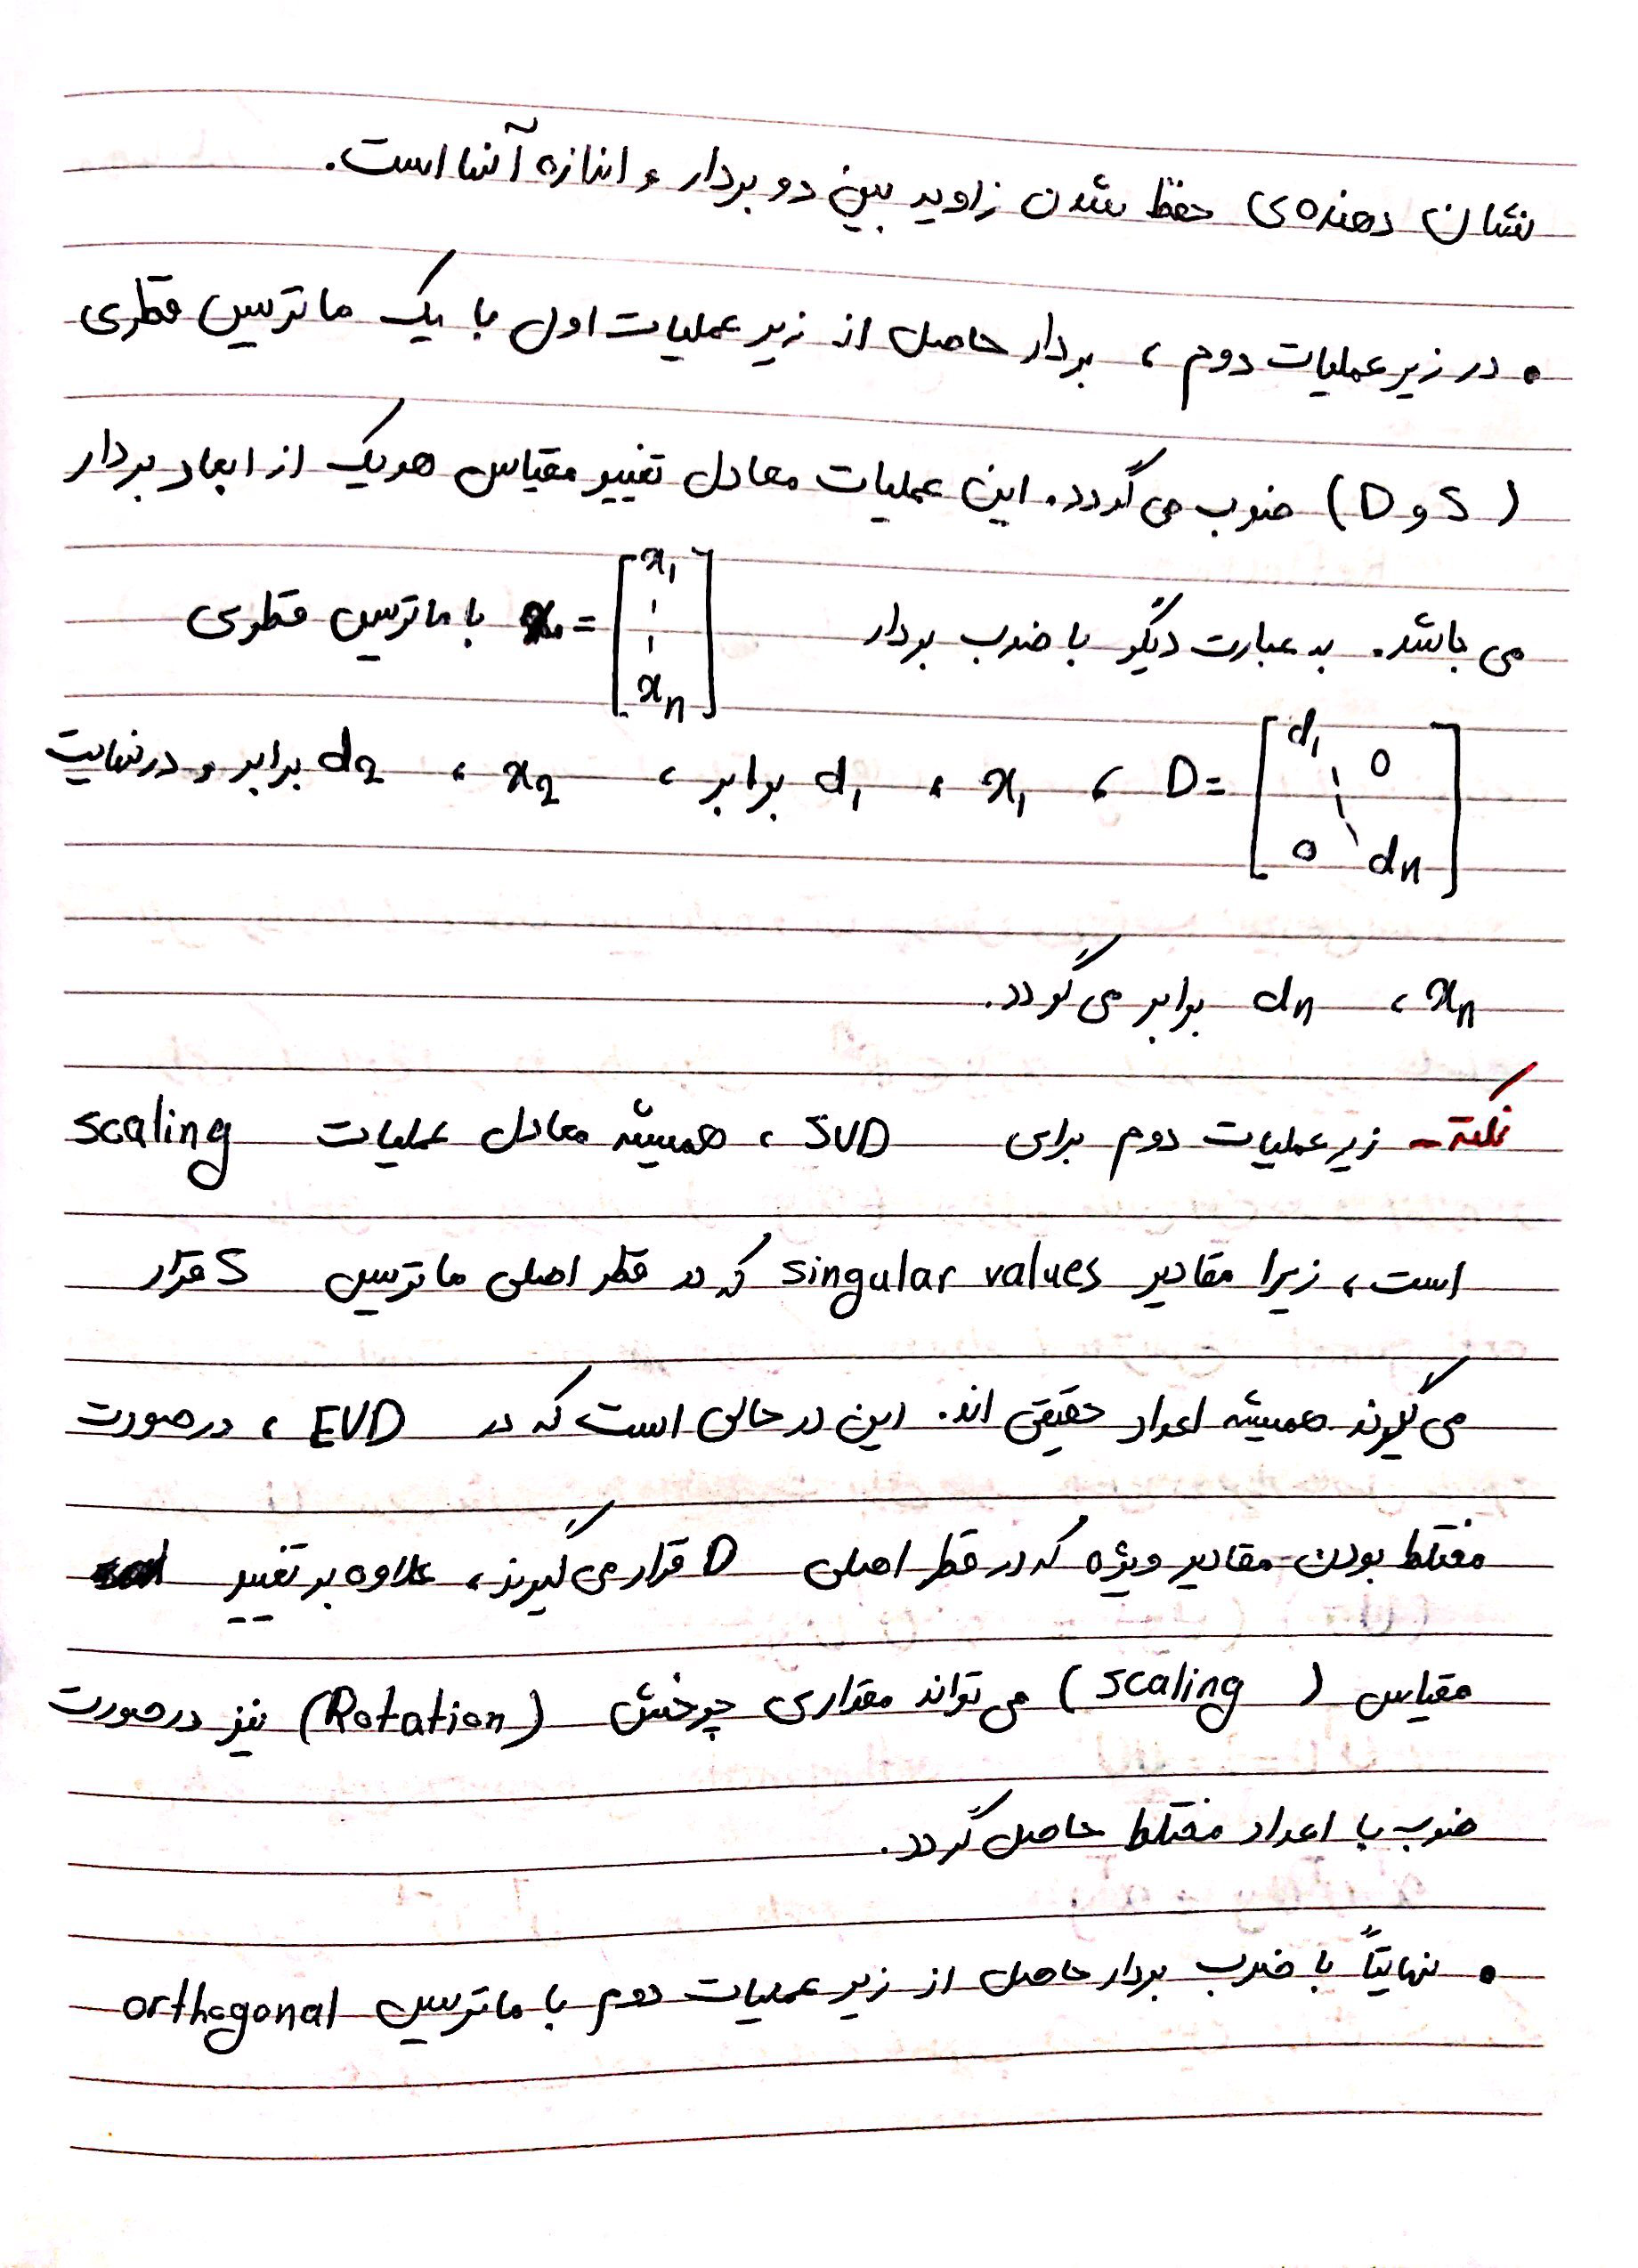 نشان دهنده‌ی حفظ شدن زاویه بین دو بردار و اندازه آنها است.
• در زیر عملیات دوم ، بردار حاصل از زیر عملیات اول با یک ماتریس قطری
(S و D) ضرب می گردد. این عملیات معادل تغییر مقیاس هر یک از ابعاد بردار
می باشد. به عبارت دیگر با ضرب بردار x = [x₁ ⋮ xₙ] با ماتریس قطری
D = [d₁ 0 ⋱ 0 dₙ] ، x₁ ، d₁ برابر ، x₂ ، d₂ برابر و در نهایت
xₙ ، dₙ برابر می گردد.
نکته - زیر عملیات دوم برای SVD ، همیشه معادل عملیات scaling
است ، زیرا مقادیر singular values که در قطر اصلی ماتریس S قرار
می گیرند همیشه اعداد حقیقی اند. این در حالی است که در EVD ، در صورت
مختلط بودن مقادیر ویژه که در قطر اصلی D قرار می گیرند ، علاوه بر تغییر
مقیاس (scaling) می تواند مقداری چرخش (Rotation) نیز در صورت
ضرب با اعداد مختلط حاصل گردد.
• نهایتاً با ضرب بردار حاصل از زیر عملیات دوم با ماتریس orthogonal